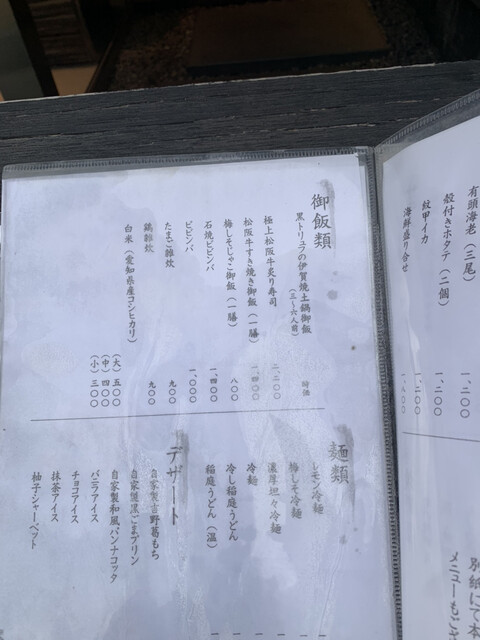 有頭海老（三尾） 一、二〇〇
殻付きホタテ（二個） 一、二〇〇
紋甲イカ 一、二〇〇
海鮮盛り合せ 一、八〇〇
別紙にて本
メニューもご
御飯類
黒トリュフの伊賀焼土鍋御飯（三～六人前） 時価
極上松阪牛炙り寿司 二、二〇〇
松阪牛すき焼き御飯（一膳） 一、四〇〇
梅しそじゃこ御飯（一膳） 八〇〇
石焼ビビンバ 一、四〇〇
ビビンバ 一、〇〇〇
たまご雑炊 九〇〇
鶏雑炊 九〇〇
白米（愛知県産コシヒカリ） （大）五〇〇
（中）四〇〇
（小）三〇〇
麺類
レモン冷麺
梅しそ冷麺
濃厚坦々冷麺
冷麺
冷し稲庭うどん
稲庭うどん（温）
デザート
自家製吉野葛もち
自家製黒ごまプリン
自家製和風パンナコッタ
バニラアイス
チョコアイス
抹茶アイス
柚子シャーベット